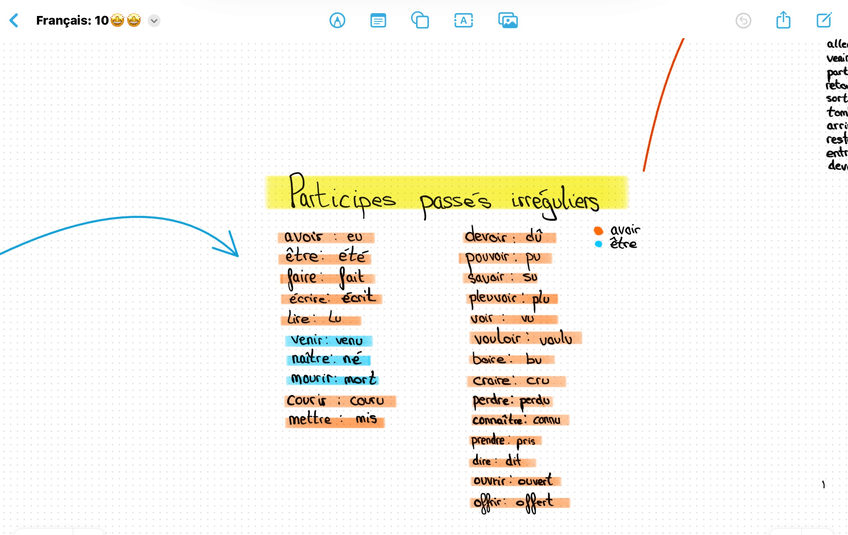 Français: 10🤩🤩
Participes passés irréguliers
avoir : eu
être : été
faire : fait
écrire : écrit
Lire : Lu
venir : venu
naître : né
mourir : mort
courir : couru
mettre : mis
devoir : dû
pouvoir : pu
savoir : su
pleuvoir : plu
voir : vu
vouloir : voulu
boire : bu
croire : cru
perdre : perdu
connaître : connu
prendre : pris
dire : dit
ouvrir : ouvert
offrir : offert
avoir
être